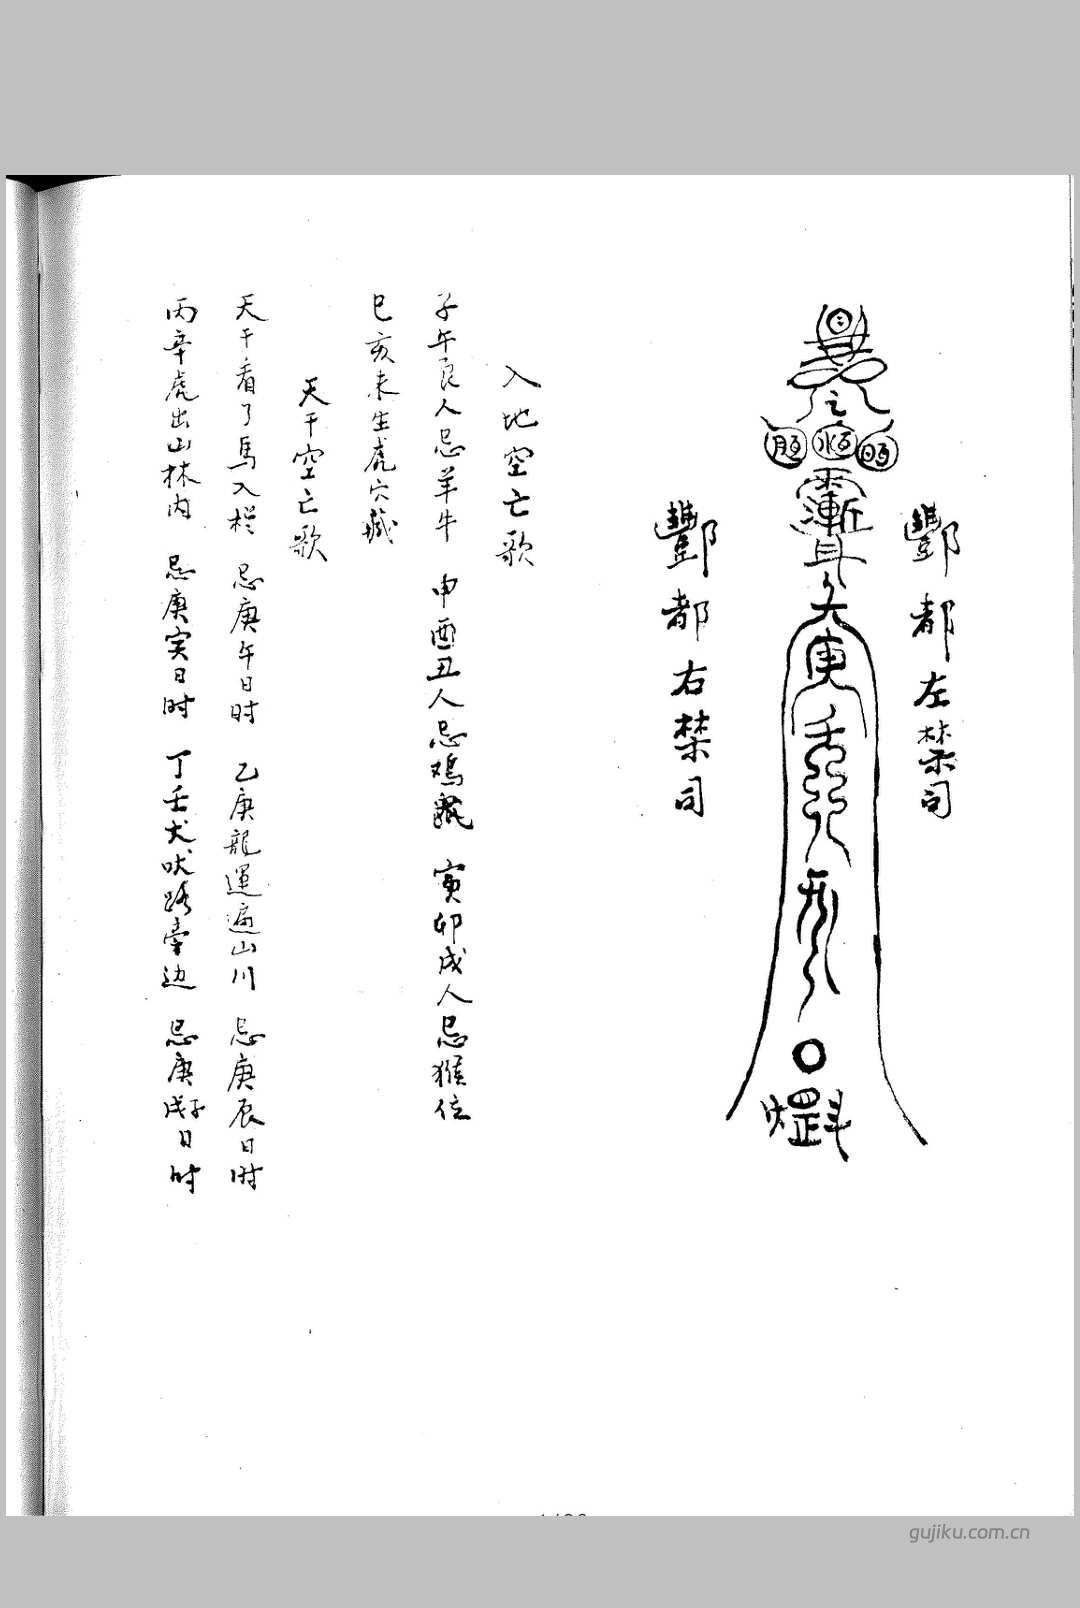 酆都左禁司
酆都右禁司
入地空亡歌
子午辰人忌羊牛 申酉丑人忌鸡 寅卯戌人忌猴位
巳亥未生虎穴藏
天干空亡歌
天干看了馬入栏 忌庚午日时 乙庚龍運遍山川 忌庚辰日时
丙辛虎出山林内 忌庚寅日时 丁壬犬吠路旁边 忌庚戌子日时
gujiku.com.cn